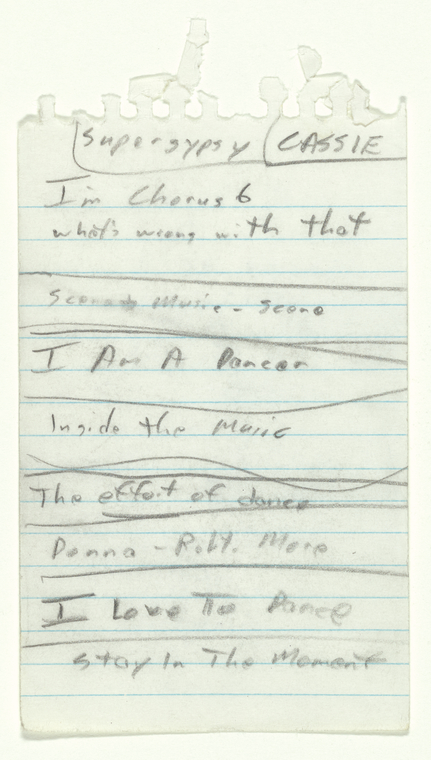 Supergypsy CASSIE
I'm Chorus 6
what's wrong with that
Music - scene
I Am A Dancer
Inside the Music
The effort of dance
Donna - Robt. More
I Love To Dance
Stay In The Moment